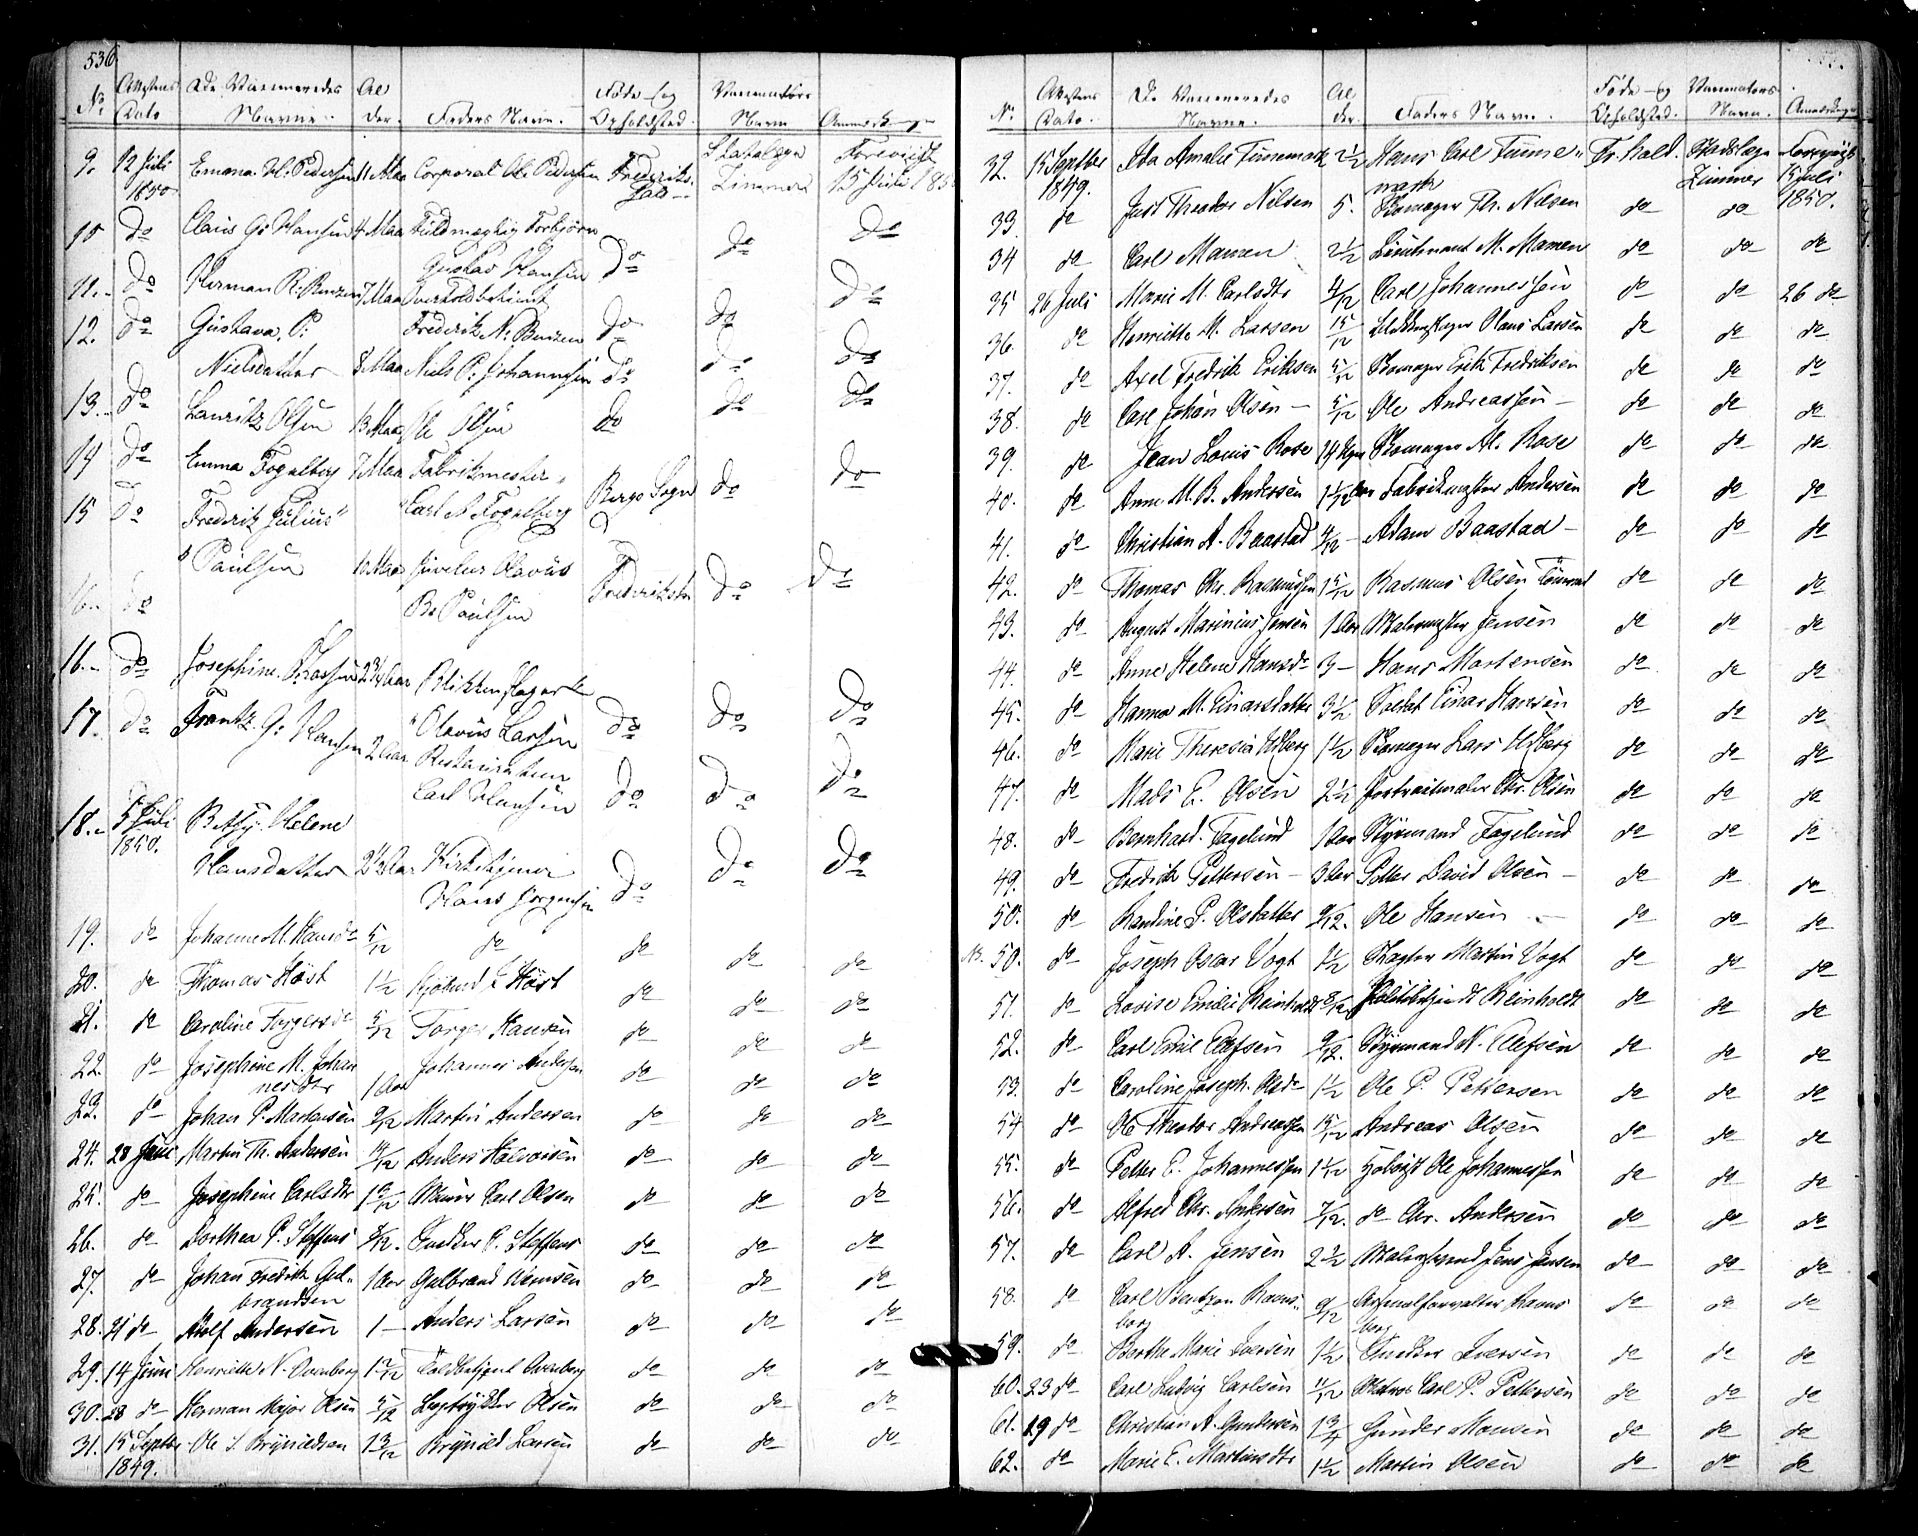 536
No | Attestens Dato | De Vaccineredes Navne. | Alder. | Faders Navn. | Føde- og Opholdsted. | Vaccinators Navn | Anmerkn
9. | 12 Juli 1850 | Emma H. Pedersen | 11 Maa | Corporal Ole Pedersen | Frederiks- | Zimmer | Foreviist 15 Juli 185
10 | Do | Claus G: Hansen | 4 Maa | Fuldmægtig Torbjørn Gustav Hansen | Do | Do | Do
11. | Do | Herman R: | 7 Maa | Toldbetjent Frederik N: | Do | Do | Do
12. | Do | Gustava P: Nielsdatter | 8 Maa | Niels P: Johannesen | Do | Do | Do
13. | Do | Lauritz Olsen | 13 Maa | Ole Olsen | Do | Do | Do
14 | Do | Emma Fogelberg | 7 Maa | Fabrikmester Carl A Fogelberg | Borge Sogn | Do | Do
15 | Do | Fredrik Julius Paulsen | 10 Maa | Juveleer Olavus B: Paulsen | Fredrikstn | Do | Do
16. | Do
16. | Do | Josephine Larsen | 2 3/4 Aar | Blikkenslager Olavus Larsen | Do | Do | Do
17. | Do | Frantz G: Hansen | 2 Aar | Restaurateur Carl Hansen | Do | Do | Do
18. | 5 Juli 1850. | Betsy Helene Hansdatter | 2 1/2 Aar | Kirketjener Hans Jørgensen | Do | Do | Do
19. | do | Johanne M. Hansdr | 5/12 | do | do | do | do
20. | do | Thomas Høst | 1 1/2 | Høst | do | do | do
21. | do | Caroline Torgersdr | 5/12 | Torger Hansen | do | do | do
22. | do | Josephine M. Johannesdtr | 1 Aar | Johannes Andersen | do | do | do
23. | do | Johan P. Martensen | 9/12 | Martin Andersen | do | do | do
24. | 28 Juni | Martin Th. Andersen | 10/12 | Anders Halvorsen | do | do | do
25. | do | Josephine Carlsdtr | | Carl Olsen | do | do | do
26. | do | Dorthea P. Steffens | 8/12. | Snedker P. Steffens | do | do | do
27. | do | Johan Fredrik Gulbrandsen | 1 Aar | Gulbrand | do | do | do
28. | 21 do | Adolf Andersen | 1 — | Anders Larsen | do | do | do
29. | 14 Juni | Henriette N. Overberg | | Toldbetjent Overberg | do | do | do
30. | 28 do | Herman Major Olsen | 5/12 | Olsen | do | do | do
31. | 15 Septbr 1849. | Ole S. Brynildsen | 1 3/12 | Brynild Larsen | do | do | do
No | Attestens Dato. | De Vaccineredes Navne. | Alder. | Faders Navn. | Føde- og Opholdsted. | Vaccinators Navn. | Anmerkninger
32. | 15 Septber 1849. | Ida Amalie Tunemark | 2 1/2 | Hans Carl Tunemark | Fr.hald. | Stadslæge Zimmer | Foreviist 15 Juli 1850.
33. | do | Just Theodor Nilsen | 5. | Skomager Th. Nilsen | do | do
34 | do | Carl Mamen | 2 1/2 | Lieutnant M. Mamen | do | do | do
35 | 26 Juli | Marie M. Carlsdtr | 4/12 | Carl Johannessen | do | do | 26 do
36. | do | Henriette M. Larsen | 15/12 | Blikkenslager Olaus Larsen | do | do | do
37. | do | Axel Fredrik Eriksen | 5/12 | Skomager Erik Fredriksen | do | do | do
38. | do | Carl Johan Olsen — | 5/12 | Ole Andreassen — | do | do | do
39. | do | Jean Louis Rose | 14 Uger | Skomager Al. Rose | do | do | do
40. | do | Anne M. B. Andersen | 1 1/2 Aar | Fabrikmester Andersen | do | do | do
41. | do | Christian A. Baastad | 4/12 — | Adam Baastad — | do | do | do
42. | do | Thomas Chr. Rasmussen | 1 5/12 | Rasmus Olsen | do | do | do
43. | do | August Marinius Jensen | 1 Aar | Malermester Jensen | do | do | do
44. | do | Anne Helene Hansdr | 3 — | Hans Mortensen | do | do | do
45. | do | Hanna M. Einarsdatter | 3 1/2 | Soldat Einar Hansen | do | do | do
46. | do | Marie Theresia Udberg | 1 1/2 | Skomager Lars Udberg | do | do | do
47. | do | Mads E. Olsen | 2 1/2 | Portraitmaler Chr. Olsen | do | do | do
48. | do | Bernhard Fagelund | 1 Aar | Styrmand Fagelund | do | do | do
49. | do | Fredrik Pettersen — | 3 Aar | Petter David Olsen — | do | do | do
50. | do | Randine P. Olsdatter | 9/12. | Ole Hansen | do | do | do
NB. 50. | do | Joseph Oscar Vogt | 1 1/2 | Martin Vogt | do | do | do
51. | do | Lovise Emilie Reinholdt | 8/12 | Politibetjendt Reinholdt | do | do | do
52. | do | Carl Emil Olefsen | 9/12. | Styrmand N. Olefsen | do | do | do
53. | do | Caroline Joseph. Olsdr | 1 1/2 | Ole P. Pettersen | do | do | do
54 | do | Ole Theodor Andreassen | 15/12 | Andreas Olsen | do | do | do
55. | do | Petter E. Johannessen | 1 1/12 | Ole Johannessen | do | do | do
56. | do | Alfred Chr. Andersen | 7/12. | do Chr. Andersen | do | do | do
57. | do | Carl A. Jensen | 2 1/2 | Jens Jensen | do | do | do
58. | do | Carl Bentzon Ramsborg | 9/12 | Arsenalforvalter Ramsborg | do | do | do
59. | do | Berthe Marie Iversen | 1 1/2 | Snedker Iversen | do | do | do
60. | 23 do | Carl Ludvig Carlsen | 11/12 | Matros Carl P. Pettersen | do | do | do
61. | 19 do | Christian A. Gundersen | 1 3/4 | Gunder Monsen | do | do | do
62. | do | Marie E. Martinsdtr | 1 1/2 | Martin Olsen | do | do | do